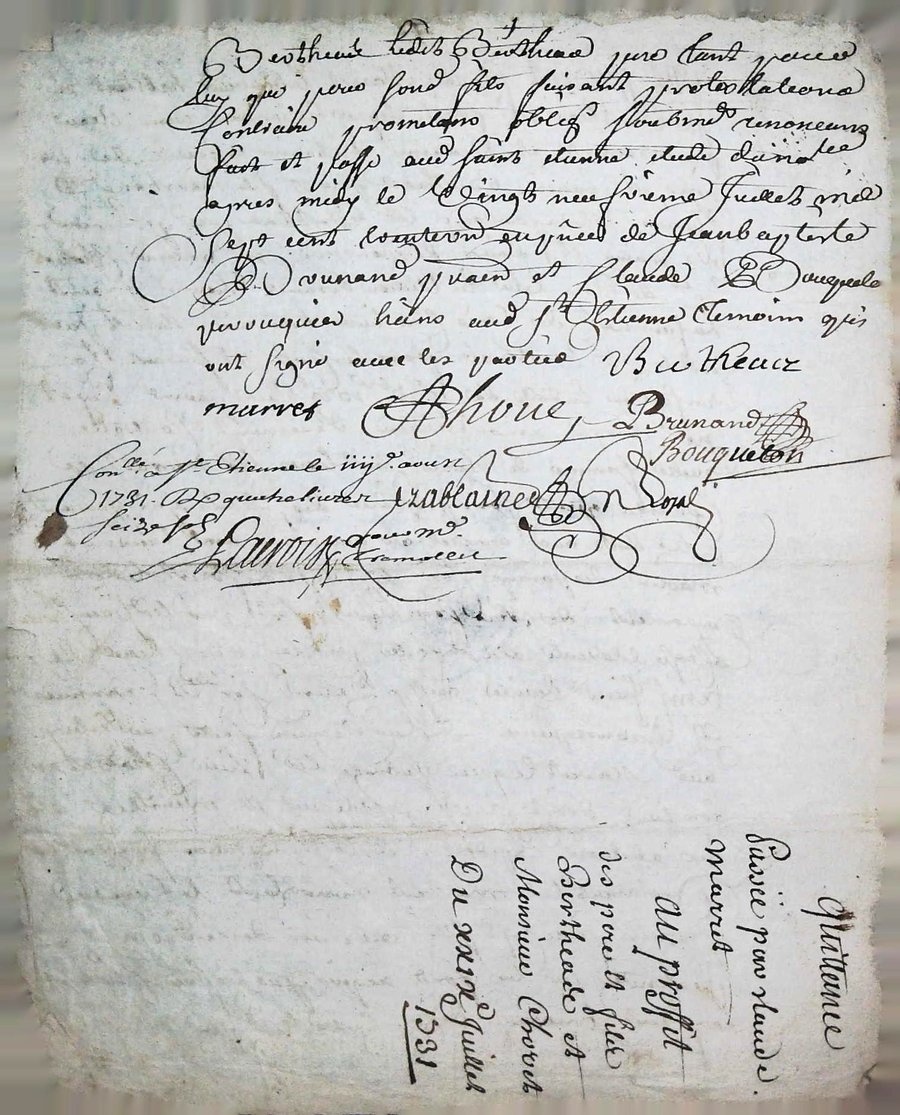 Bertheas ledit Bertheas pere tant pour
luy que pour fond fils suisant protestations
Contraire promettans oblig soubmed renonceans
fait et passé aud saint etienne etude dud notre
apres midy le vingt neufvieme Juillet mil
sept cent trente un en pnce de Jean baptiste
Brunand praen et Claude Bouqueton
perruquier hans aud St Etienne temoins quis
ont signé avec les parties Bertheaz
marret Ahoue Brunand
Bouqueton
Conllé a St Etienne le iiije aoust
1731. R quatre livres
seize sols
Lacroix
Quittance
passée par Claude
Marret
au proffit
des pere et fils
Bertheade et
Monsieur Chovet
Du xxixe Juillet
1731